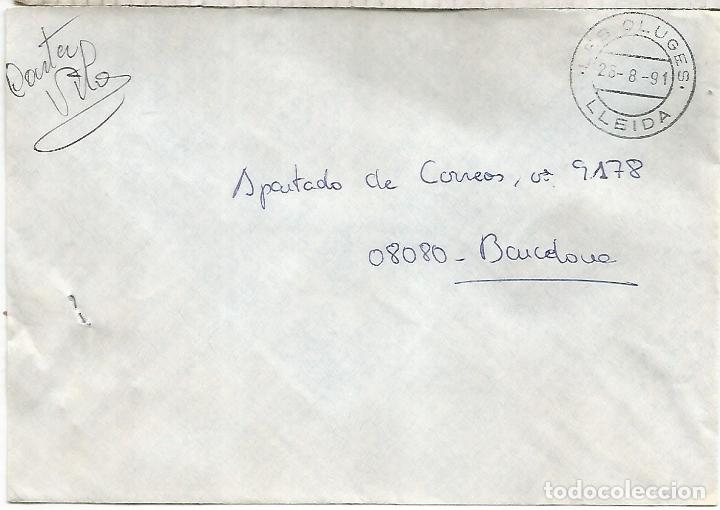 Cartería
LES OLUGES
26-8-91
LLEIDA
Apartado de Correos, nº 9178
08080 - Barcelona
todocoleccion